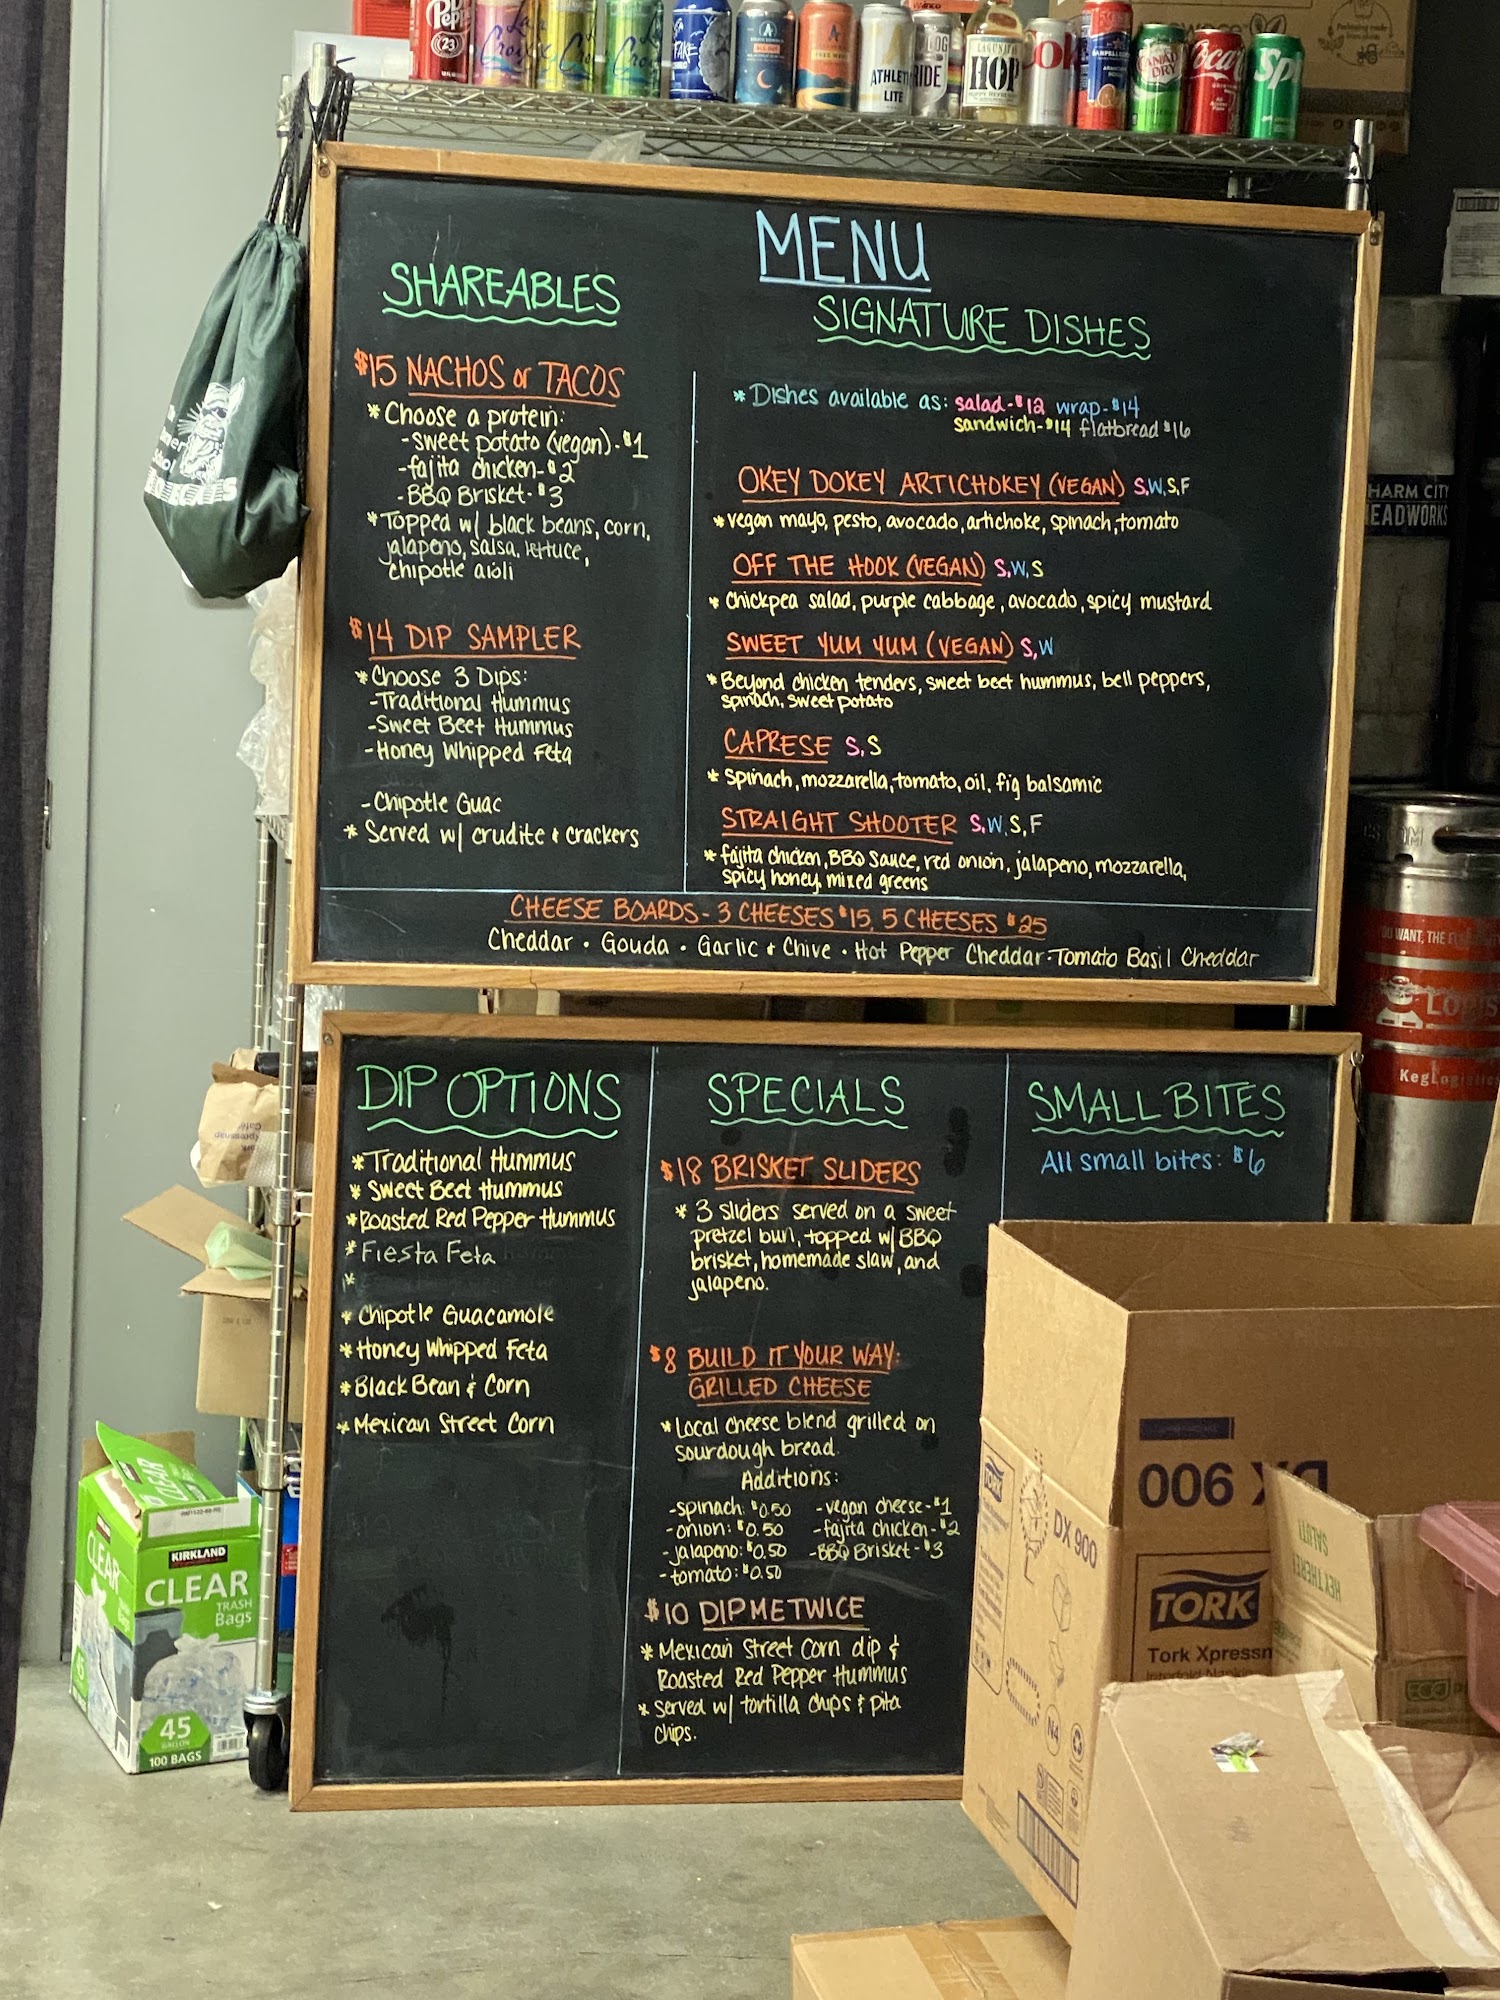 Dr Pepper
23
ATHLETIC
LITE
LAGUNITAS
HOP
CANADA
DRY
MENU
SHAREABLES
$15 NACHOS or TACOS
* Choose a protein:
- sweet potato (vegan) - $1
- fajita chicken - $2
- BBQ Brisket - $3
* Topped w/ black beans, corn,
jalapeno, salsa, lettuce,
chipotle aioli
$14 DIP SAMPLER
* Choose 3 Dips:
- Traditional Hummus
- Sweet Beet Hummus
- Honey Whipped Feta
- Chipotle Guac
* Served w/ crudite & crackers
SIGNATURE DISHES
* Dishes available as: salad - $12 wrap - $14
sandwich - $14 flatbread $16
OKEY DOKEY ARTICHOKEY (VEGAN) S,W,S,F
* vegan mayo, pesto, avocado, artichoke, spinach, tomato
OFF THE HOOK (VEGAN) S,W,S
* Chickpea salad, purple cabbage, avocado, spicy mustard
SWEET YUM YUM (VEGAN) S,W
* Beyond chicken tenders, sweet beet hummus, bell peppers,
spinach, sweet potato
CAPRESE S,S
* Spinach, mozzarella, tomato, oil, fig balsamic
STRAIGHT SHOOTER S,W,S,F
* fajita chicken, BBQ sauce, red onion, jalapeno, mozzarella,
spicy honey, mixed greens
CHEESE BOARDS - 3 CHEESES $15, 5 CHEESES $25
Cheddar • Gouda • Garlic & Chive • Hot Pepper Cheddar • Tomato Basil Cheddar
DIP OPTIONS
* Traditional Hummus
* Sweet Beet Hummus
* Roasted Red Pepper Hummus
* Fiesta Feta
*
* Chipotle Guacamole
* Honey Whipped Feta
* Black Bean & Corn
* Mexican Street Corn
SPECIALS
$18 BRISKET SLIDERS
* 3 sliders served on a sweet
pretzel bun, topped w/ BBQ
brisket, homemade slaw, and
jalapeno.
$8 BUILD IT YOUR WAY:
GRILLED CHEESE
* Local cheese blend grilled on
sourdough bread.
Additions:
- spinach: $0.50 - vegan cheese - $1
- onion: $0.50 - fajita chicken - $2
- jalapeno: $0.50 - BBQ Brisket - $3
- tomato: $0.50
$10 DIP ME TWICE
* Mexican Street Corn dip &
Roasted Red Pepper Hummus
* Served w/ tortilla chips & pita
chips.
SMALL BITES
All small bites: $6
HARM CITY
HEADWORKS
KegLogistics
KIRKLAND
CLEAR
TRASH
Bags
45
GALLON
100 BAGS
CLEAR
DX 900
DX 900
TORK
Tork Xpressn
HEY THERE!